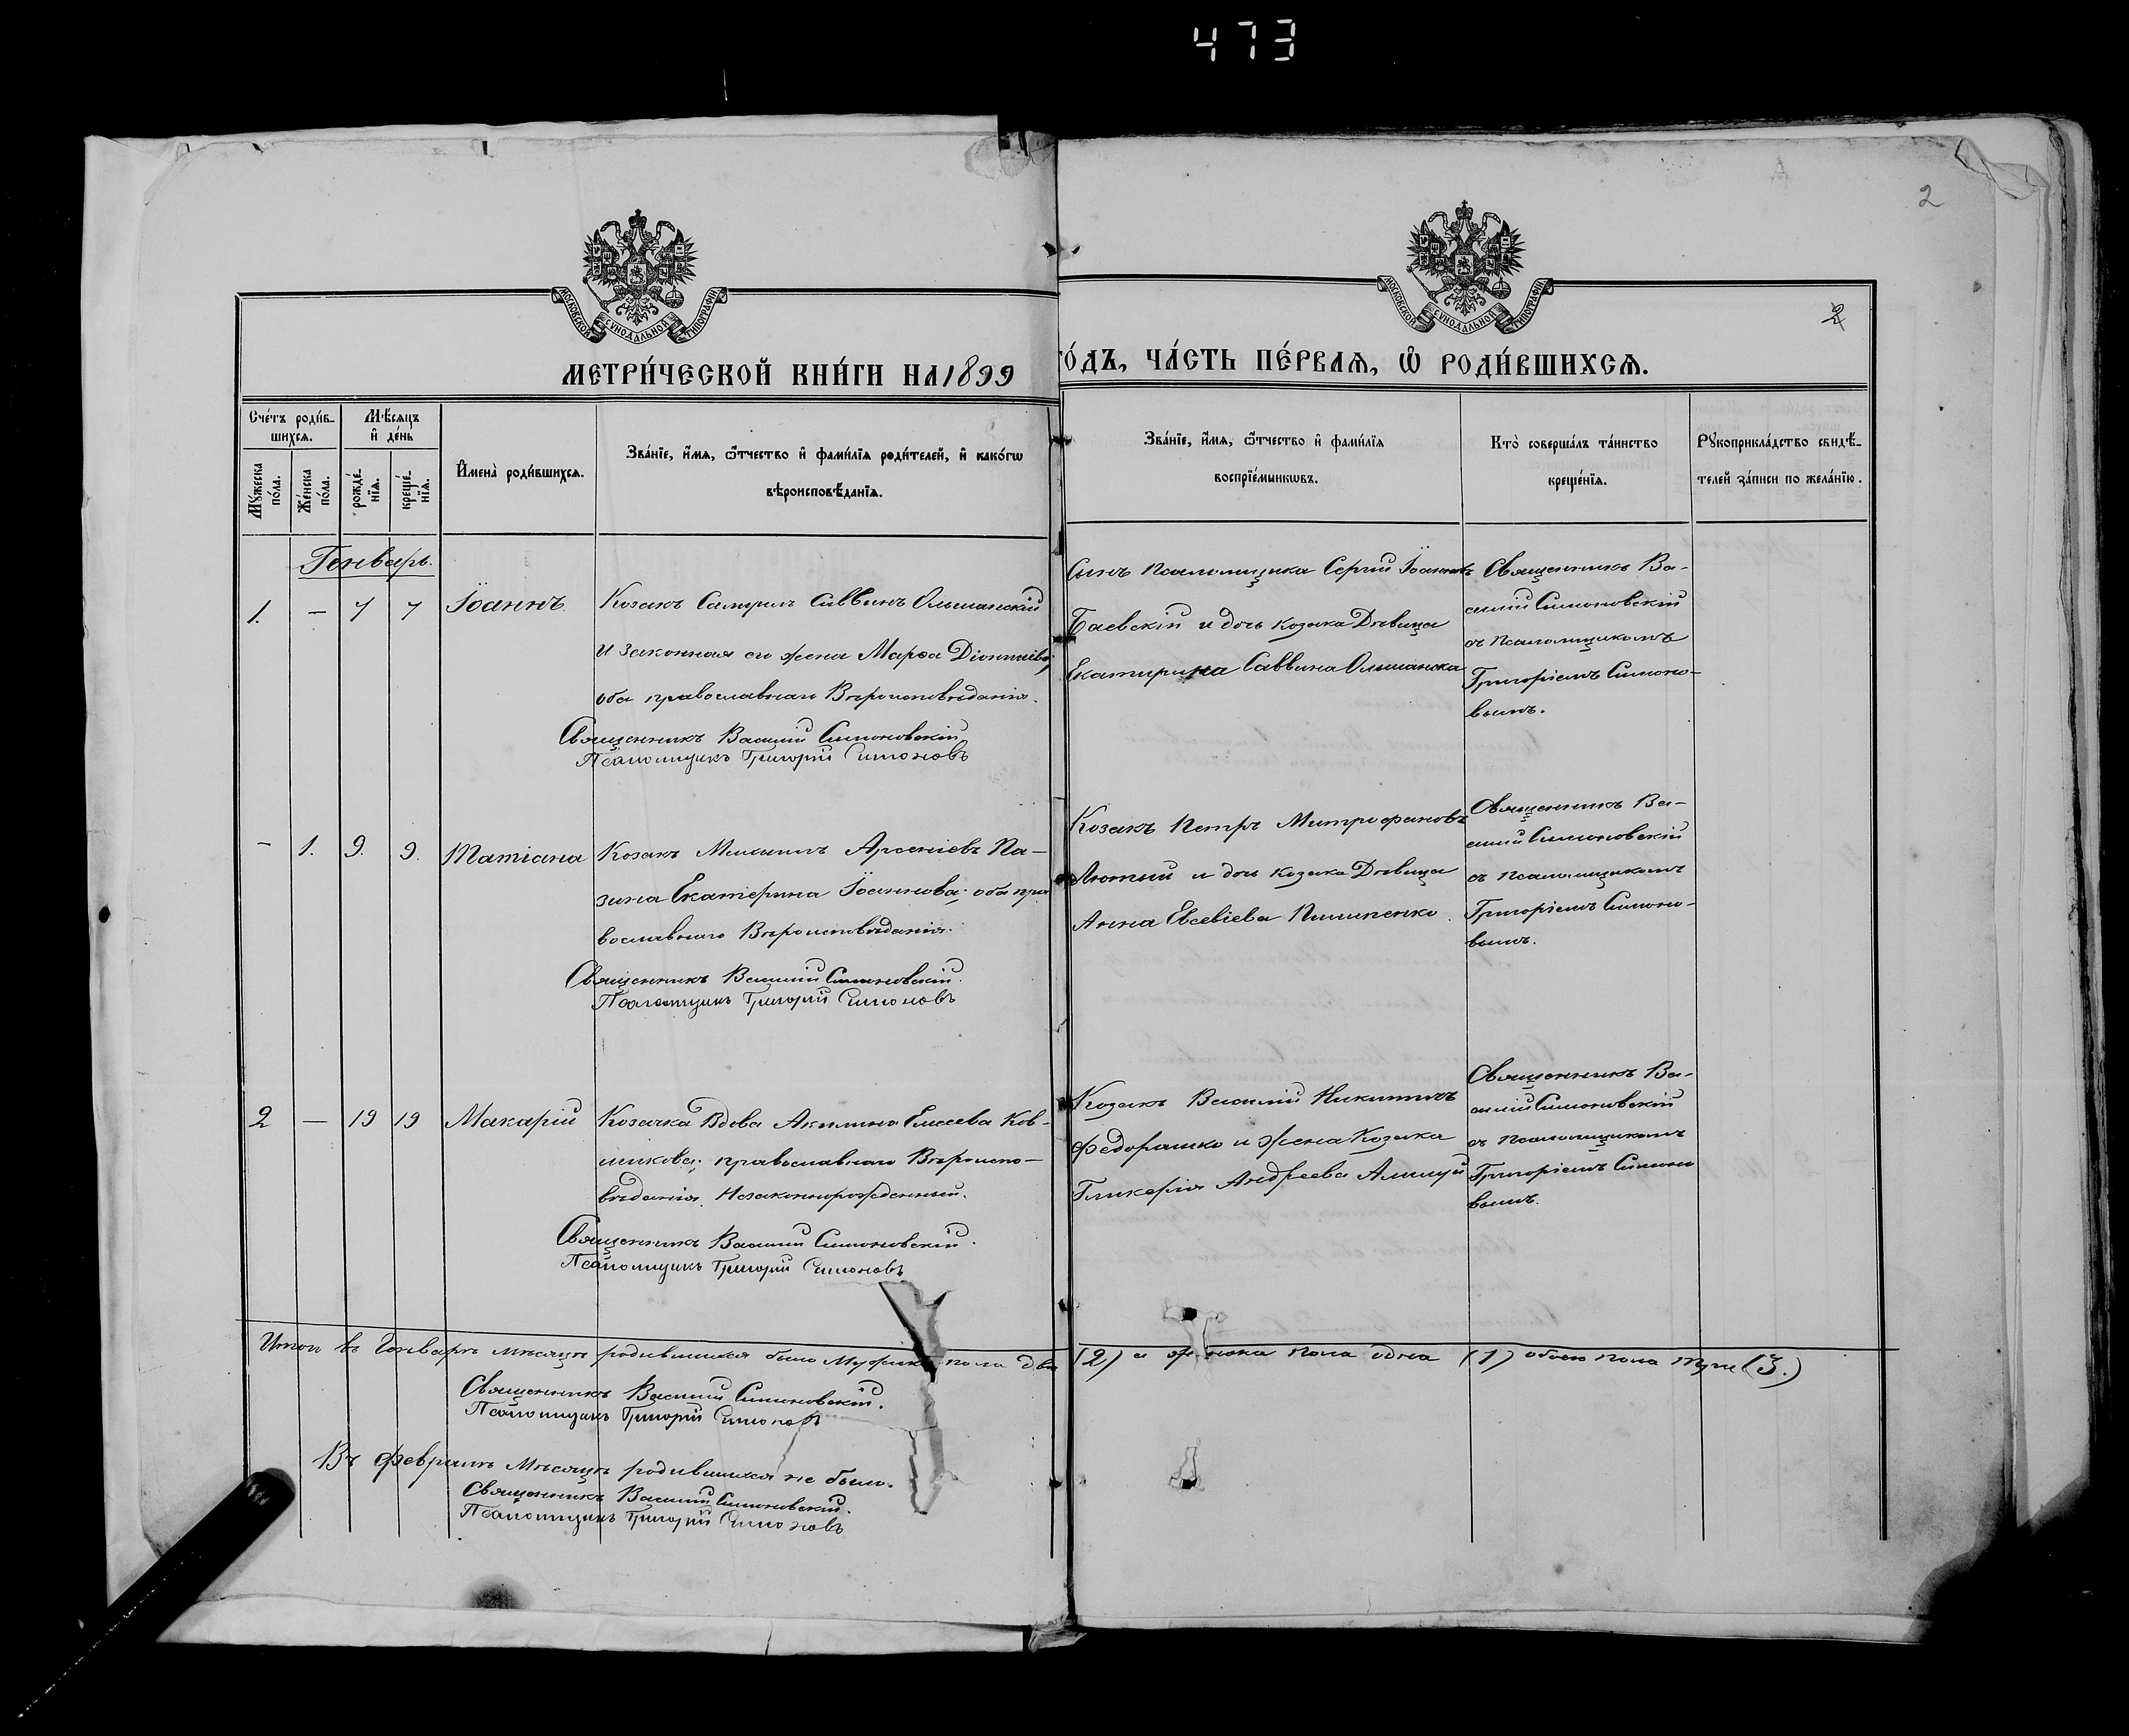 473
2
МОСКОВСКОЙ СУНОДАЛЬНОЙ ТИПОГРАФІИ
МОСКОВСКОЙ СУНОДАЛЬНОЙ ТИПОГРАФІИ
2
МЕТРИ́ЧЕСКОЙ КНИ́ГИ НА 1899
ГО́ДЪ, ЧА́СТЬ ПЕ́РВАѦ, Ѽ РОДИ́ВШИХСѦ.
Сче́тъ роди́в-
шихсѧ.
Мꙋ́жеска
по́ла.
Же́нска
по́ла.
Мѣ́сѧцъ
и҆ де́нь
рожде́-
нїѧ.
креще́-
нїѧ.
И҆мена̀ роди́вшихсѧ.
Зва́нїе, и҆́мѧ, ѻ҆́тчество и҆ фами́лїѧ роди́телей, и҆ како́гѡ
вѣроисповѣ́данїѧ.
Зва́нїе, и҆́мѧ, ѻ҆́тчество и҆ фами́лїѧ
воспрїе́мникѡвъ.
Кто̀ соверша́лъ та́инство
креще́нїѧ.
Рꙋкоприкла́дство свидѣ́-
телей за́писи по жела́нїю.
Генварь.
1. — 7 7 Іоаннъ
Козакъ Самуилъ Саввинъ Ольшанскій
и законная его жена Марѳа Діонисіева,
оба православнаго Вѣроисповѣданія.
Священникъ Василій Симоновскій
Псаломщикъ Григорій Симоновъ
Сынъ псаломщика Сергій Іоанновъ
Баевскій и дочь козака Дѣвица
Екатирина Саввина Ольшанска
Священникъ Ва-
силій Симоновскій
съ псаломщикомъ
Григоріемъ Симоно-
вымъ.
— 1. 9. 9. Татіана
Козакъ Арсеніевъ Ла-
зина Екатерина Іоаннова; оба пра
вославнаго Вѣроисповѣданія.
Священникъ Василій Симоновскій.
Псаломщикъ Григорій Симоновъ
Козакъ Петръ Митрофановъ
Лютый и дочь козака Дѣвица
Анна Евсевіева Пилипенко.
Священникъ Ва-
силій Симоновскій
съ псаломщикомъ
Григоріемъ Симоно-
вымъ.
2 — 19 19 Макарій
Козачка Вдова Акилина Елисеева Ков-
шикова; православнаго Вѣроиспо-
вѣданія. Незаконнорожденный.
Священникъ Василій Симоновскій.
Псаломщикъ Григорій Симоновъ
Козакъ Василій Никитинъ
Федорашко и жена Козака
Гликерія Андреева
Священникъ Ва-
силій Симоновскій
съ псаломщикомъ
Григоріемъ Симоно
вымъ.
Итого въ Генварѣ мѣсяцѣ родившихся было Мужска пола два (2) а женска пола одна (1) обоего пола трое (3.)
Священникъ Василій Симоновскій.
Псаломщикъ Григорій Симоновъ
Въ Февралѣ Мѣсяцѣ родившихся не было.
Священникъ Василій Симоновскій.
Псаломщикъ Григорій Симоновъ